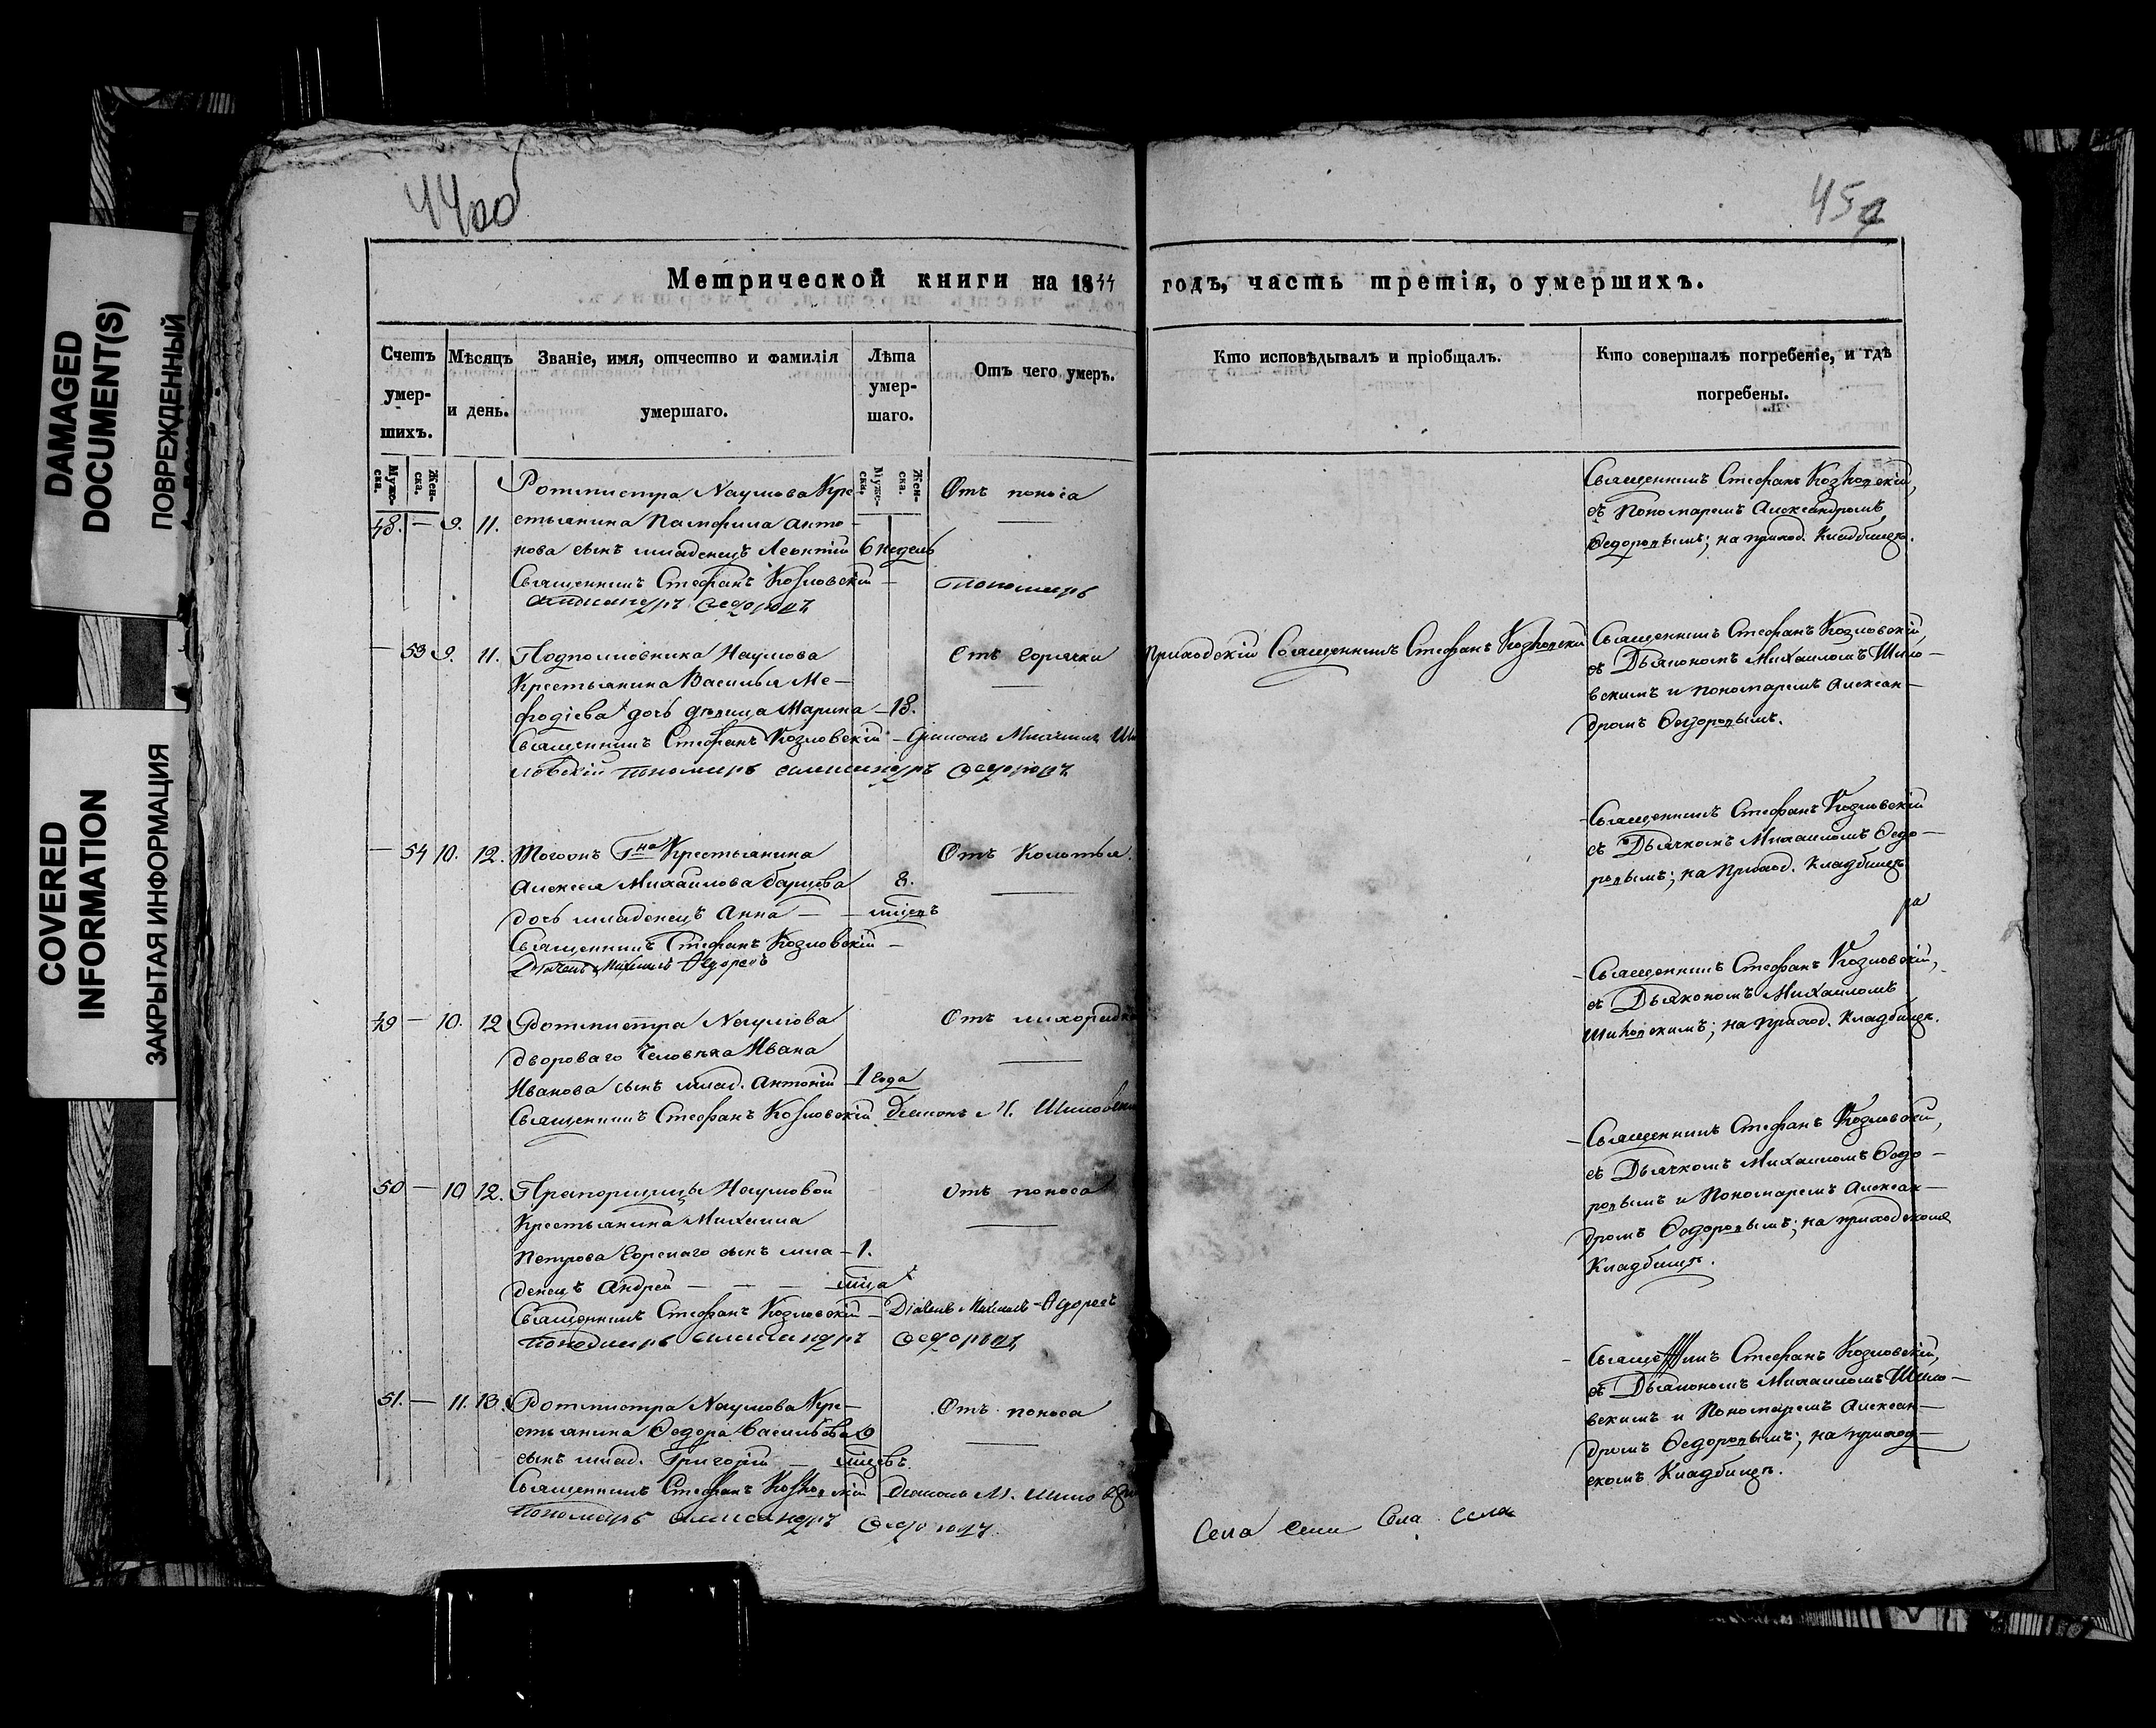 44об
45
DAMAGED
DOCUMENT(S)
ПОВРЕЖДЕННЫЙ
COVERED
INFORMATION
ЗАКРЫТАЯ ИНФОРМАЦИЯ
Метрической книги на 1844
годъ, часть третія, о умершихъ.
Счетъ умер-шихъ.
Мѣсяцъ и день.
Званіе, имя, отчество и фамилія умершаго.
Лѣта умер-шаго.
Отъ чего умеръ.
Кто исповѣдывалъ и пріобщалъ.
Кто совершалъ погребеніе, и гдѣ погребены.
Муже-ска. Жен-ска.
Муже-ска. Жен-ска.
Ротмистра Наумова Кре
Отъ поноса
48. — 9. 11. стьянина Памфила Анто-
нова сынъ младенецъ Леонтій 6 недель
Священникъ Стефанъ Козловскій — Пономарь
Александръ Федоровъ
Священникъ Стефанъ Козловскій,
съ Пономаремъ Александромъ
Федоровымъ; на приход. Кладбищѣ.
— 53 9. 11. Подполковника Наумова
Отъ горячки
Крестьянина Василья Ме-
фодіева дочь дѣвица Марина — 18.
Священникъ Стефанъ Козловскій — Дьяконъ Михаилъ Ши
ловскій Пономарь Александръ Федоровъ
Приходскій Священникъ Стефанъ Козловскій
Священникъ Стефанъ Козловскій,
съ Дьякономъ Михаиломъ Шило-
вскимъ и пономаремъ Алексан-
дромъ Федоровымъ.
— 54 10. 12. Гна Крестьянина
Отъ Колотья.
Алексея Михайлова
8.
дочь младенецъ Анна — — мцевъ
Священникъ Стефанъ Козловскій —
Дьячекъ Михаилъ Федоровъ
Священникъ Стефанъ Козловскій
съ Дьячкомъ Михаиломъ Федо-
ровымъ; на Приход. Кладбищѣ
ра
49 — 10. 12 Ротмистра Наумова
Отъ лихорадки
двороваго Человѣка Ивана
Иванова сынъ млад. Антоній — 1 года
Священникъ Стефанъ Козловскій. Дьяконъ М. Шиловскій
Священникъ Стефанъ Козловскій,
съ Дьякономъ Михаиломъ
Шиловскимъ; на приход. Кладбищѣ.
50 — 10 12. Прапорщицы Наумовой
Отъ поноса
Крестьянина Михаила
Петрова сынъ мла — 1.
денецъ Андрей — — — мца
Священникъ Стефанъ Козловскій — Діачекъ Михаилъ Федоровъ
Пономарь Александръ Федоровъ
Священникъ Стефанъ Козловскій,
съ Дьячкомъ Михаиломъ Федо-
ровымъ и Пономаремъ Алексан-
дромъ Федоровымъ; на приходскомъ
Кладбищѣ.
51. — 11. 13. Ротмистра Наумова Кре-
Отъ поноса
стьянина Федора Васильева 9
сынъ млад. Григорій — мцевъ.
Священникъ Стефанъ Козловскій Дьяконъ М. Шиловскій
Пономарь Александръ Федоровъ
Священникъ Стефанъ Козловскій,
съ Дьякономъ Михаиломъ Шило-
вскимъ и Пономаремъ Алексан-
дромъ Федоровымъ; на приход-
скомъ Кладбищѣ.
Села Села Села Села